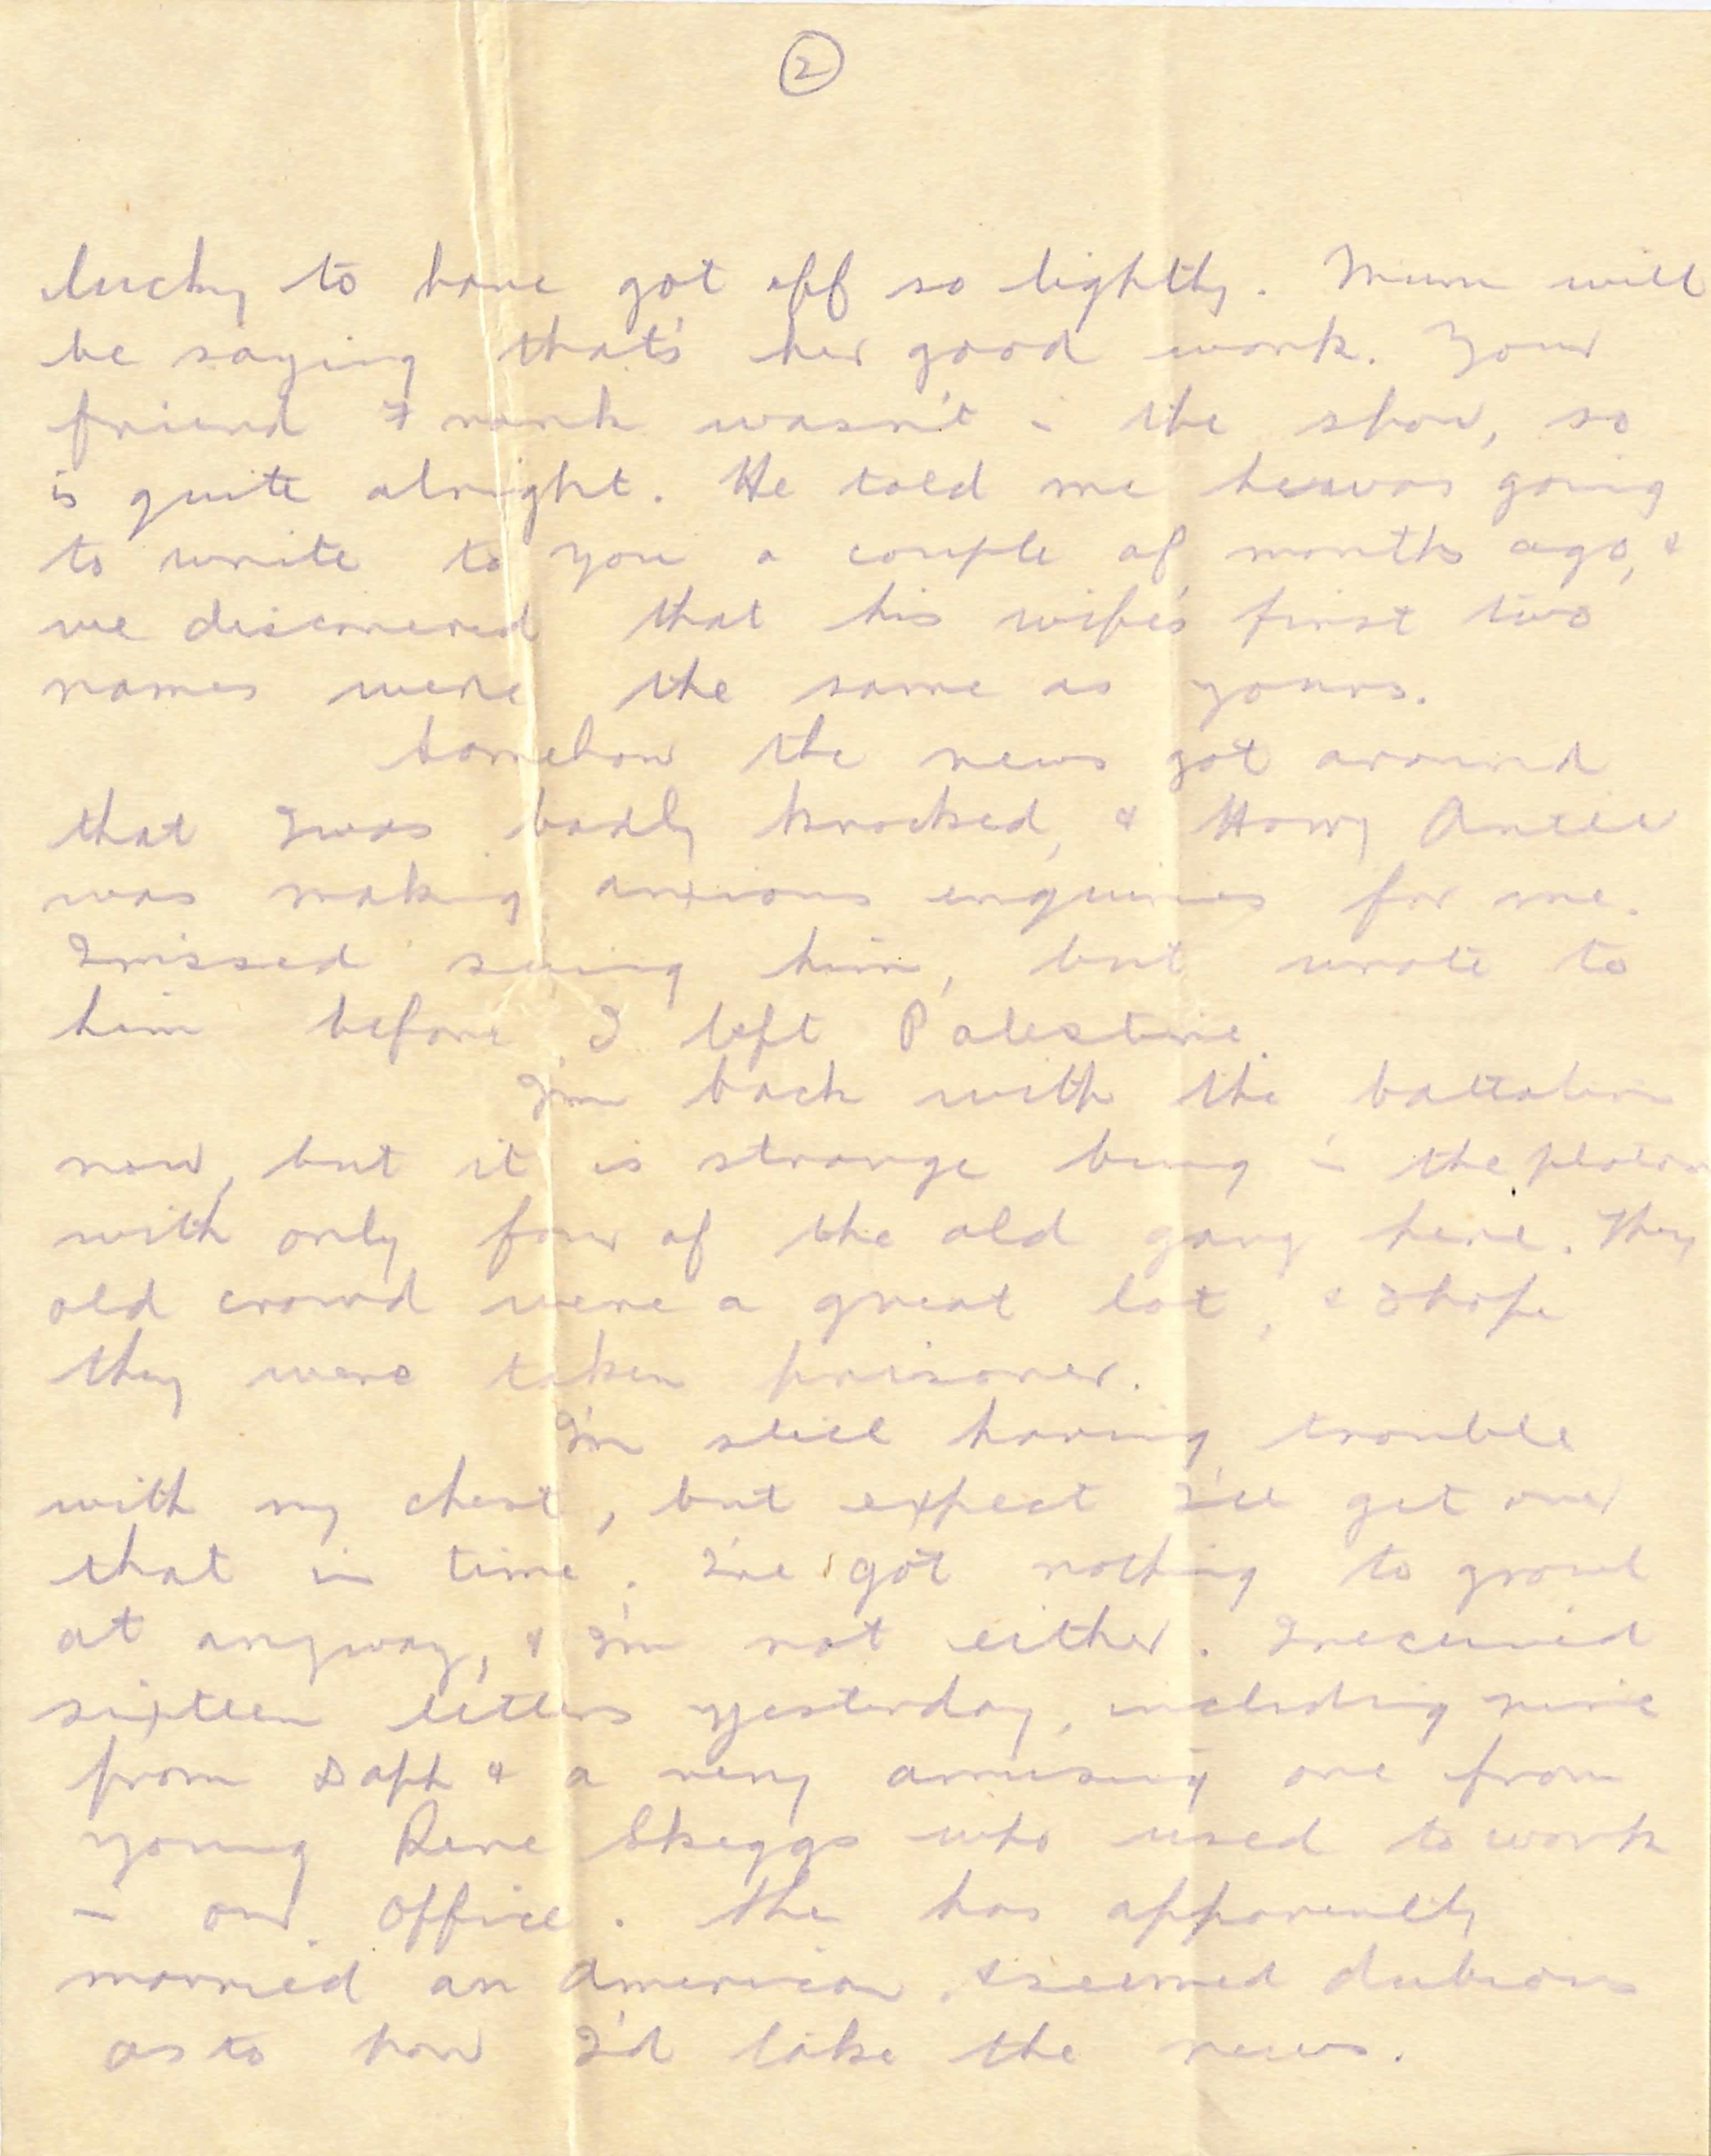 2
lucky to have got off so lightly. Mum will
be saying that's her good work. Your
friend Frank wasn't in the show, so
is quite alright. He told me he was going
to write to you a couple of months ago, &
we discovered that his wife's first two
names were the same as yours.
Somehow the news got around
that I was badly knocked, & Harry
was making anxious enquiries for me.
I missed seeing him, but wrote to
him before I left Palestine.
I'm back with the battalion
now, but it is strange being in the platoon
with only four of the old gang here. They
old crowd were a great lot, & I hope
they were taken prisoner.
I'm still having trouble
with my chest, but expect I'll get over
that in time. I've got nothing to growl
at anyway, & I'm not either. I received
sixteen letters yesterday, including nine
from Daph & a very amusing one from
young Rene Skeggs who used to work
in our office. She has apparently
married an American, & seemed dubious
as to how I'd take the news.